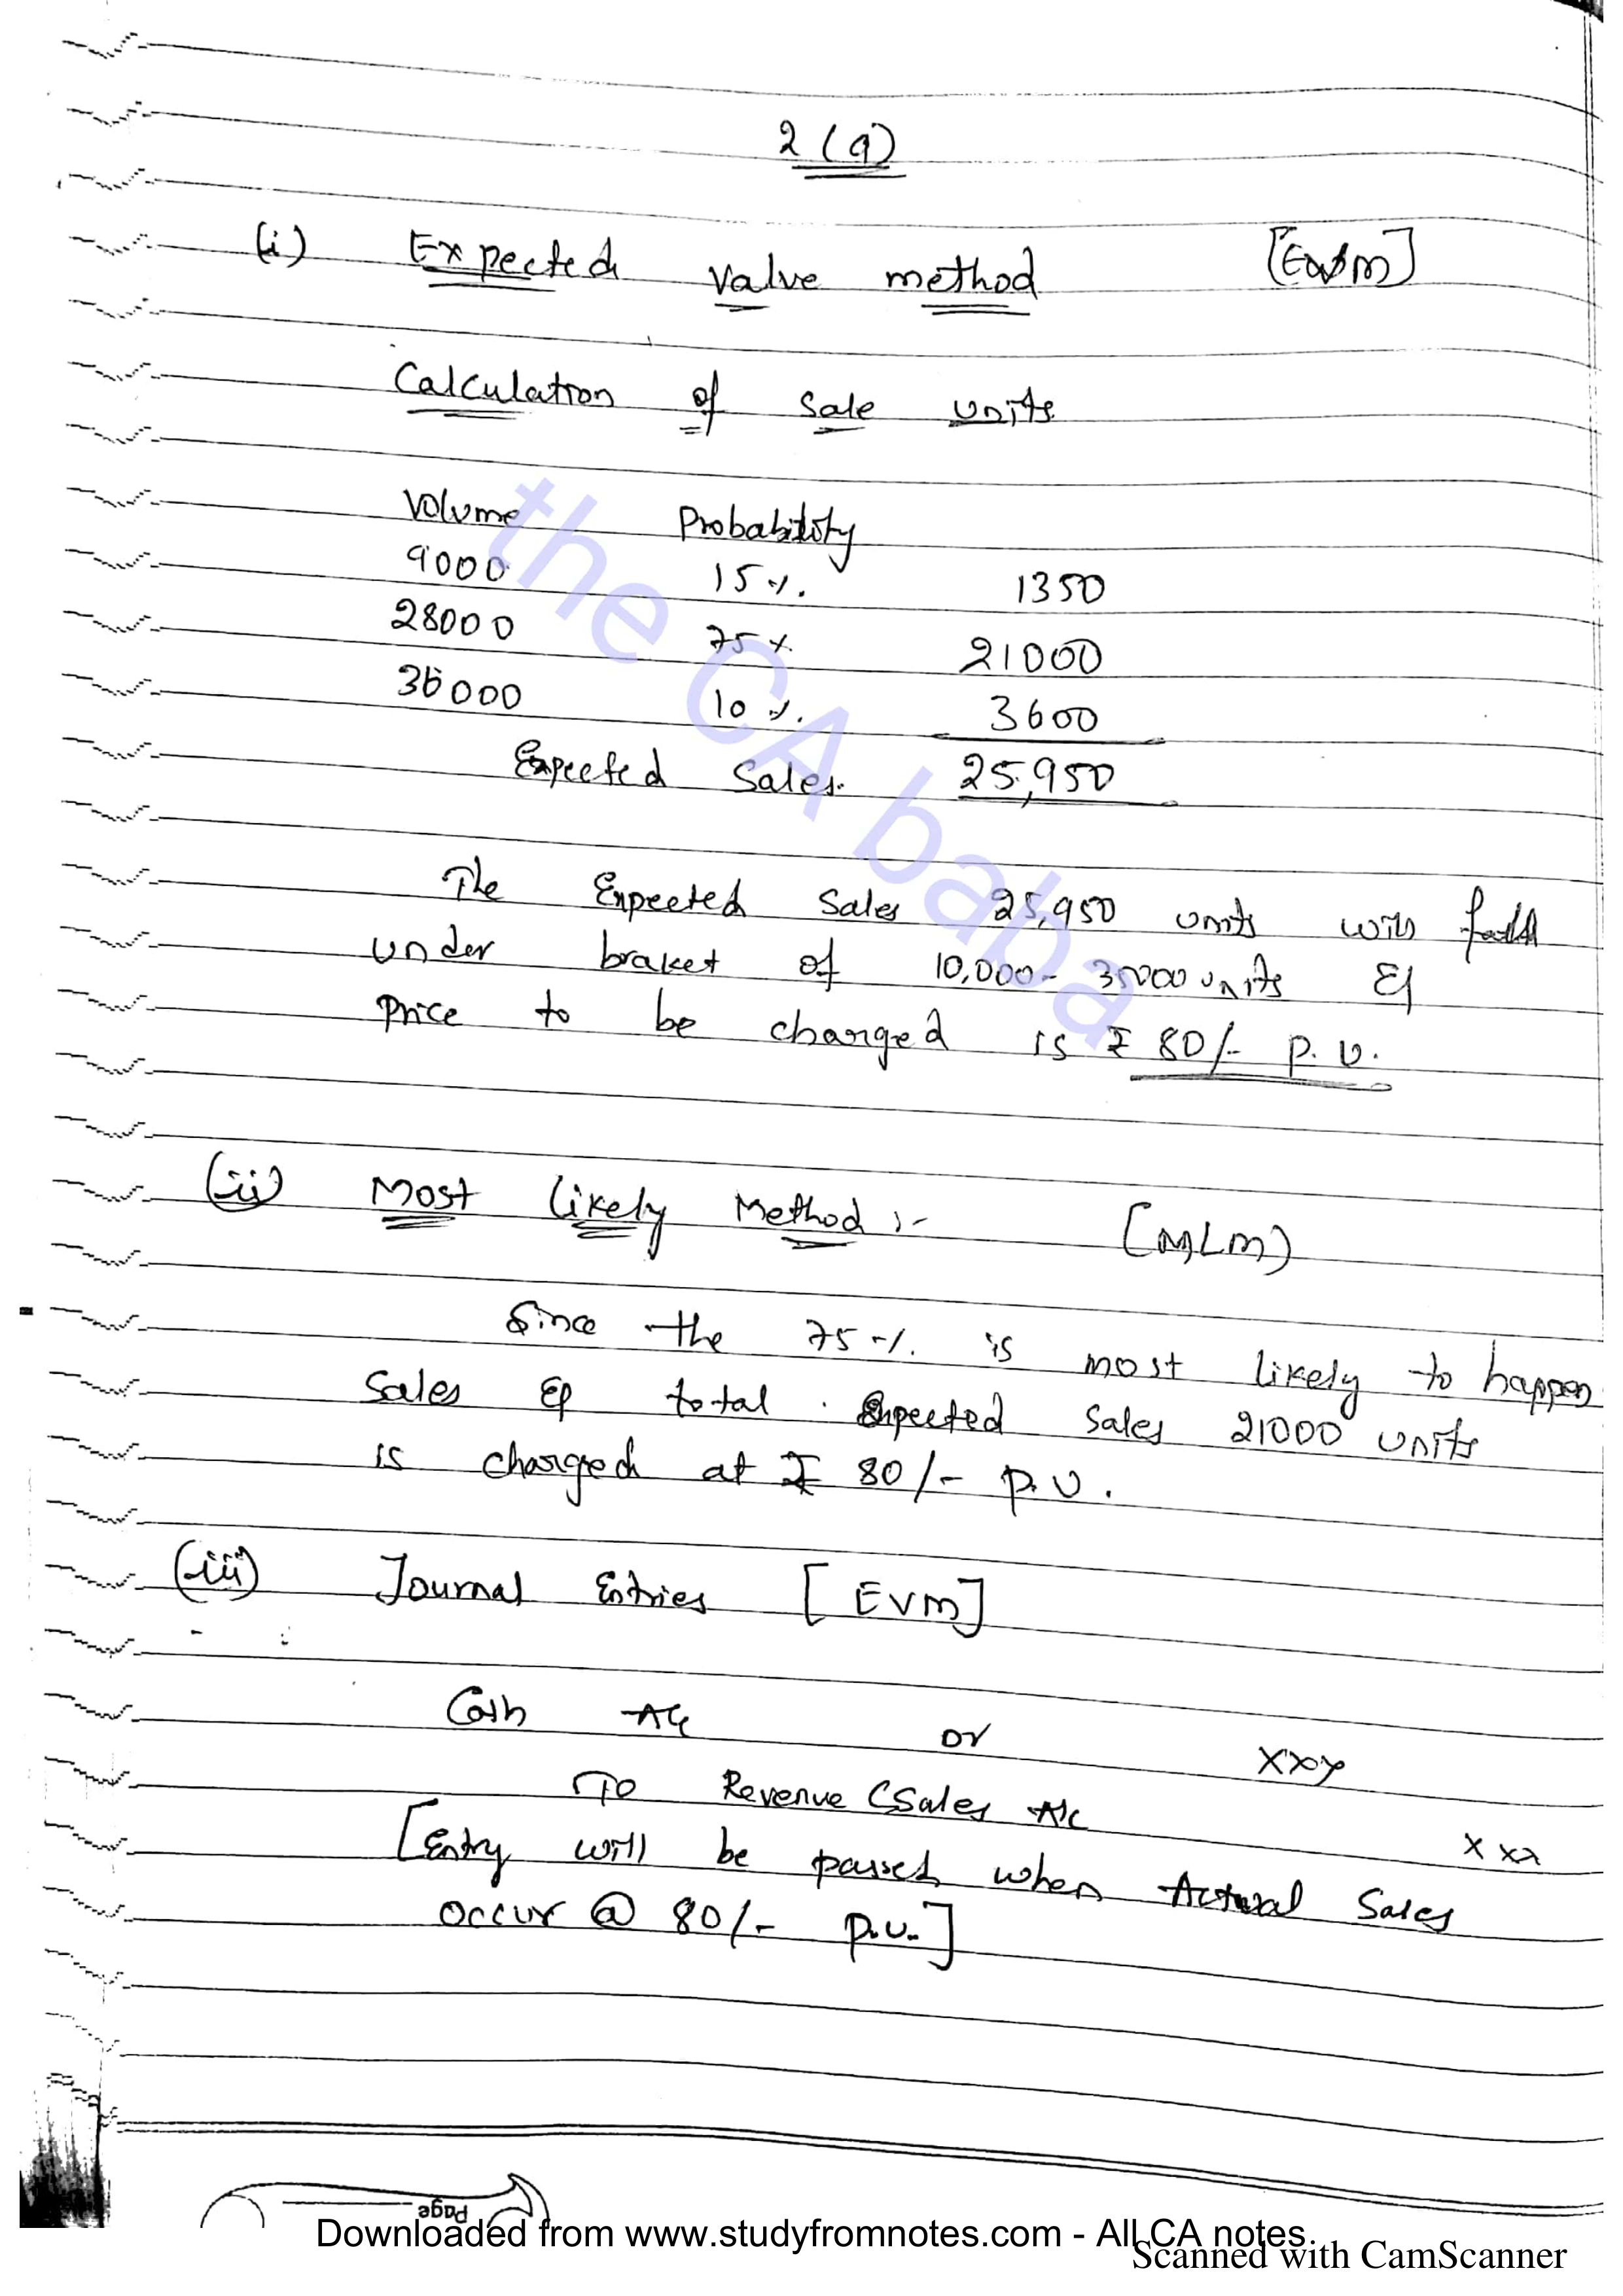 2 (a)
(i) Expected value method [EVM]
Calculation of Sale units
Volume Probability
9000 15%. 1350
28000 75% 21000
36000 10%. 3600
Expected Sales. 25,950
The Expected Sales 25,950 units will fall
under braket of 10,000 - 35000 units &
Price to be charged is ₹ 80/- p.u.
(ii) Most likely Method :- (MLM)
Since the 75%. is most likely to happen
Sales & total Expected Sales 21000 units
is charged at ₹ 80/- p.u.
(iii) Journal Entries [EVM]
Cash A/c Dr xxx
To Revenue / Sales A/c xxx
[Entry will be passed when Actual Sales
occur @ 80/- p.u.]
the CA baba
Page
Downloaded from www.studyfromnotes.com - All CA notes
Scanned with CamScanner